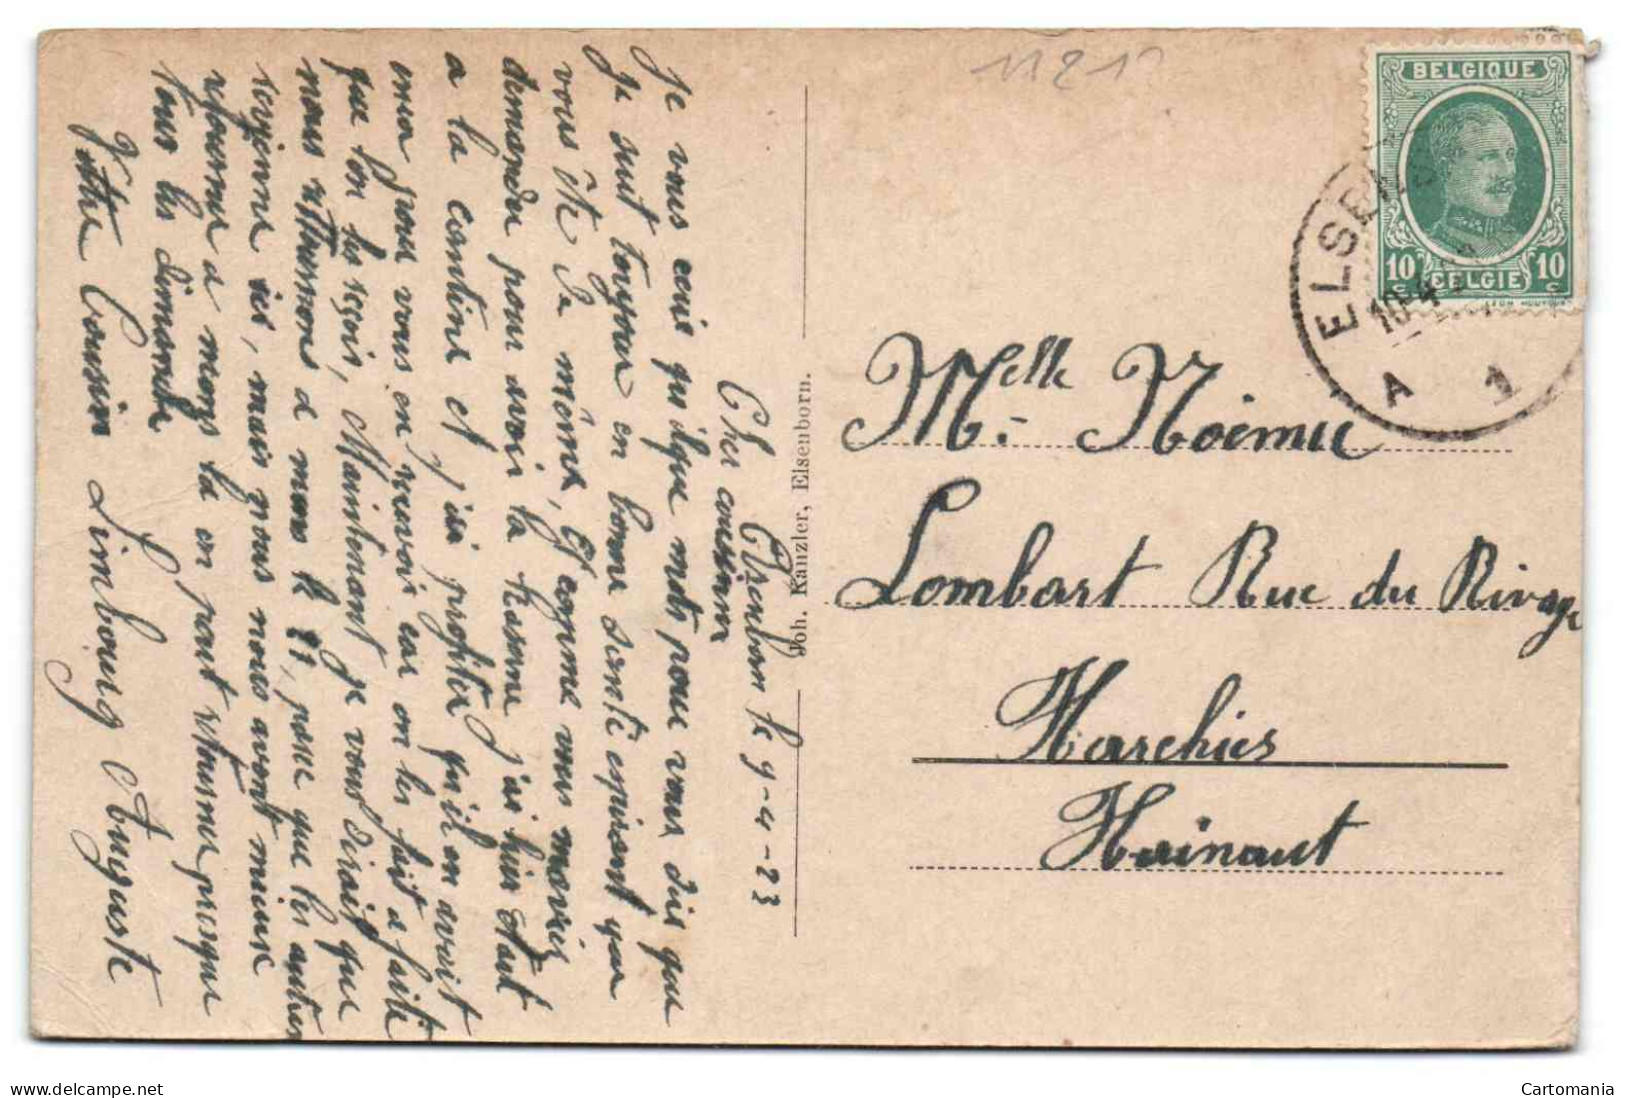 Elsenborn le 9-4-23
Cher cousinn
Je vous ecris quelque mots pour vous dir que
Je suit toujour en bonne santé espérant que
vous ête de même, Et comme vous m'avier
demander pour avoir la kasanne j'ai hier étant
a la cantine et j'ai profiter qu'il en avait
mon pour vous en recevoir car on les fait de suite
que l'on les reçois, Maintenant je vous dirait que
nous retournons a mons le 11, pour que les autres
reviennes ici, mais nous nous avons mieux
retourner a mons la on peut retourner presque
tous les dimanche
Votre Cousin Limbourg Auguste
Joh. Kanzler, Elsenborn.
1121
BELGIQUE
10 c BELGIE 10 c
ELSEN
10-4
A 1
Melle Noémie
Lombart Rue du Rivage
Harchies
Hainaut
www.delcampe.net
Cartomania